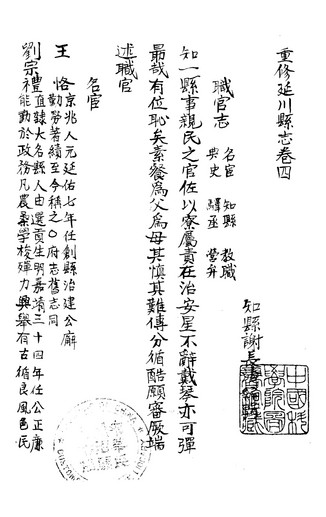 重修延川縣志卷四
知縣謝長清重輯
職官志 名宦 知縣 教職
典史 驛丞 營弁
知一縣事親民之官佐以寮屬責在治安星不辭戴琴亦可彈
最哉有位恥矣素餐為父為母其慎其難傳分循酷願審厥端
述職官
名宦
王恪京兆人元延佑七年任創縣治建公廨
勤勞著績至今稱之〇府志舊志同
劉宗禮直隸大名縣人由選貢生明嘉靖三十四年任公正廉
能勤於政務凡農桑學校殫力興舉有古循良風邑民